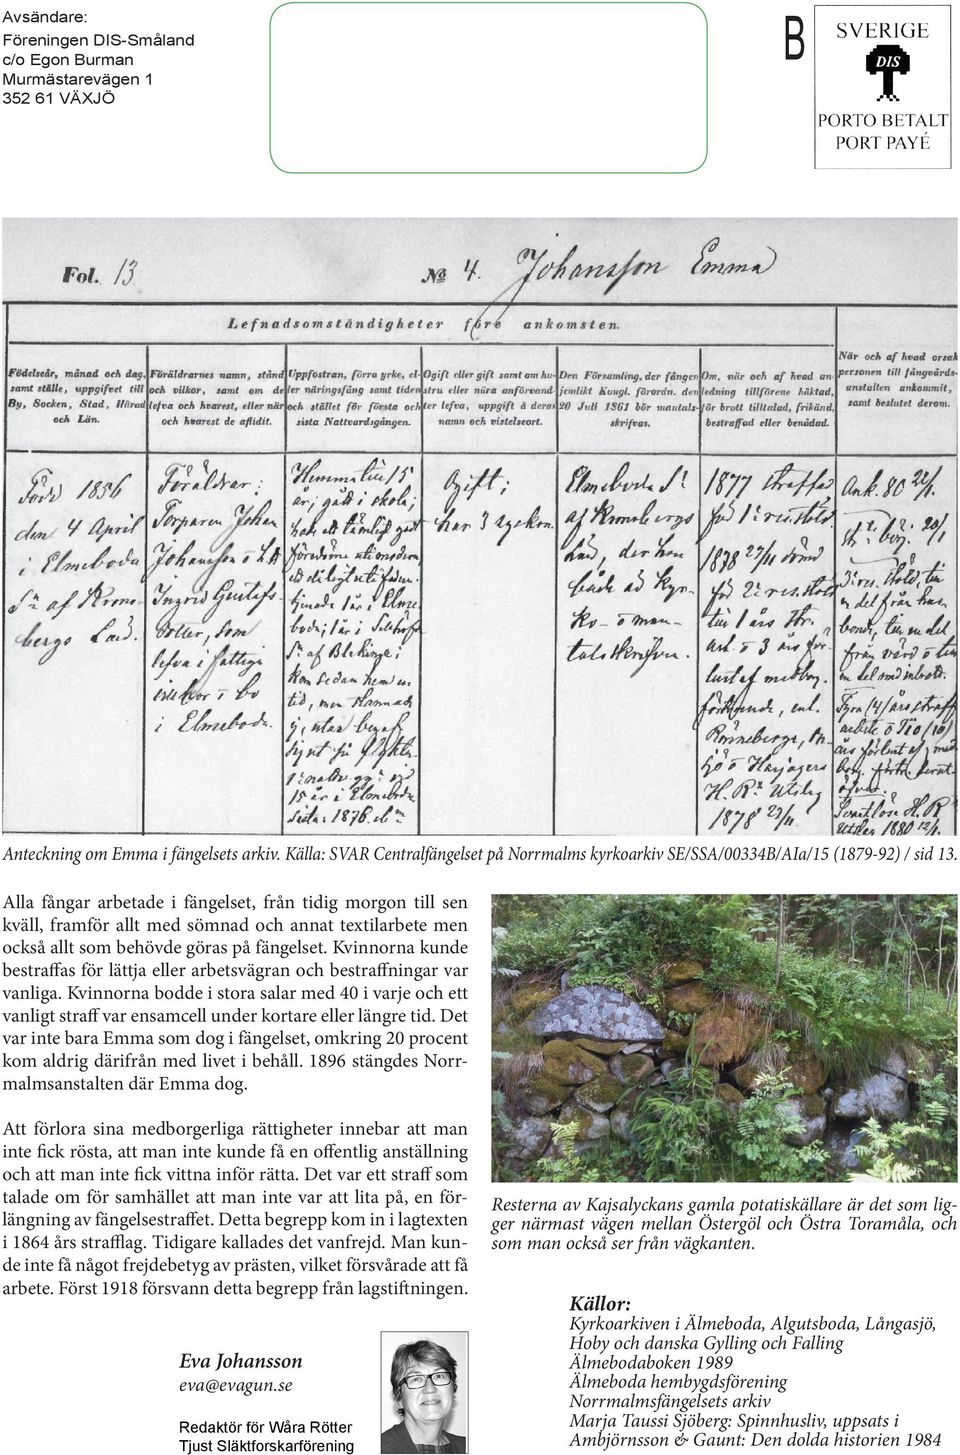 Avsändare:
Föreningen DIS-Småland
c/o Egon Burman
Murmästarevägen 1
352 61 VÄXJÖ
B
SVERIGE
DIS
PORTO BETALT
PORT PAYÉ
Fol. 13
№ 4. Johansson Emma
Lefnadsomständigheter före ankomsten.
Födelseår, månad och dag,
samt ställe, uppgifvet till
By, Socken, Stad, Härad
och Län.
Föräldrarnes namn, stånd
och vilkor, samt om de
lefva och hvarest, eller när
och hvarest de aflidit.
Uppfostran, förra yrke, el-
ler näringsfång samt tiden
och stället för första och
sista Nattvardsgången.
Ogift eller gift samt om hu-
stru eller nära anförvand-
ter lefva, uppgift å deras
namn och vistelseort.
Den Församling, der fången
jemlikt Kongl. förordn. den
20 Juli 1861 bör mantals-
skrifvas.
Om, när och af hvad an-
ledning tillförene häktad,
för brott tilltalad, frikänd,
bestraffad eller benådad.
När och af hvad orsak
personen till fångvårds-
anstalten ankommit,
samt beslutet derom.
Född 1856
den 4 April
i Elmeboda
Sn af Krono-
bergs Län.
Föräldrar:
Torparen Johan
Johansson o. h.
Ingrid Gustafs-
dotter, som
lefva i fattiga
o bo
i Elmeboda.
Hemma till 15
år; gått i skola;
Ogift;
har 3 ägekon.
Elmeboda Sn
af Kronobergs
Län, der hon
både är Kyr-
ko- o man-
talsskrifven.
1877 straffad
för 1a res. stöld.
1878 27/11 dömd
för 2a res. stöld
till 1 års str.
arb. o 3 års för-
lust af medborg.
förtroende, enl.
H. Rs Utslag
1878 27/11
Ank. 80 22/1.
Anteckning om Emma i fängelsets arkiv. Källa: SVAR Centralfängelset på Norrmalms kyrkoarkiv SE/SSA/00334B/AIa/15 (1879-92) / sid 13.
Alla fångar arbetade i fängelset, från tidig morgon till sen
kväll, framför allt med sömnad och annat textilarbete men
också allt som behövde göras på fängelset. Kvinnorna kunde
bestraffas för lättja eller arbetsvägran och bestraffningar var
vanliga. Kvinnorna bodde i stora salar med 40 i varje och ett
vanligt straff var ensamcell under kortare eller längre tid. Det
var inte bara Emma som dog i fängelset, omkring 20 procent
kom aldrig därifrån med livet i behåll. 1896 stängdes Norr-
malmsanstalten där Emma dog.
Att förlora sina medborgerliga rättigheter innebar att man
inte fick rösta, att man inte kunde få en offentlig anställning
och att man inte fick vittna inför rätta. Det var ett straff som
talade om för samhället att man inte var att lita på, en för-
längning av fängelsestraffet. Detta begrepp kom in i lagtexten
i 1864 års strafflag. Tidigare kallades det vanfrejd. Man kun-
de inte få något frejdebetyg av prästen, vilket försvårade att få
arbete. Först 1918 försvann detta begrepp från lagstiftningen.
Eva Johansson
eva@evagun.se
Redaktör för Wåra Rötter
Tjust Släktforskarförening
Resterna av Kajsalyckans gamla potatiskällare är det som lig-
ger närmast vägen mellan Östergöl och Östra Toramåla, och
som man också ser från vägkanten.
Källor:
Kyrkoarkiven i Älmeboda, Algutsboda, Långasjö,
Hoby och danska Gylling och Falling
Älmebodaboken 1989
Älmeboda hembygdsförening
Norrmalmsfängelsets arkiv
Marja Taussi Sjöberg: Spinnhusliv, uppsats i
Ambjörnsson & Gaunt: Den dolda historien 1984